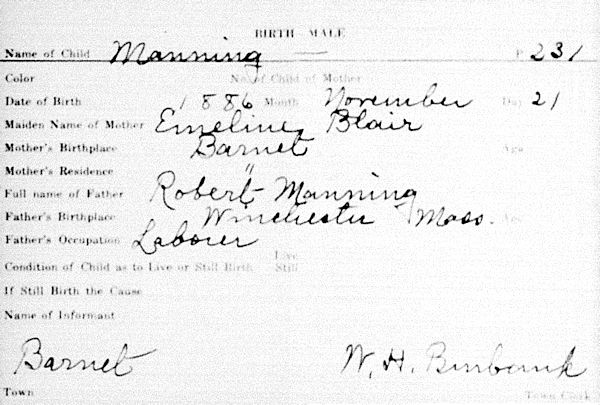 BIRTH—MALE
Name of Child Manning — P 231
Color No. of Child of Mother
Date of Birth 1886 Month November Day 21
Maiden Name of Mother Emeline Blair
Mother's Birthplace Barnet Age
Mother's Residence "
Full name of Father Robert Manning
Father's Birthplace Winchester Mass. Age
Father's Occupation Laborer
Condition of Child as to Live or Still Birth Live Still
If Still Birth the Cause
Name of Informant
Barnet W. H. Burbank
Town Town Clerk